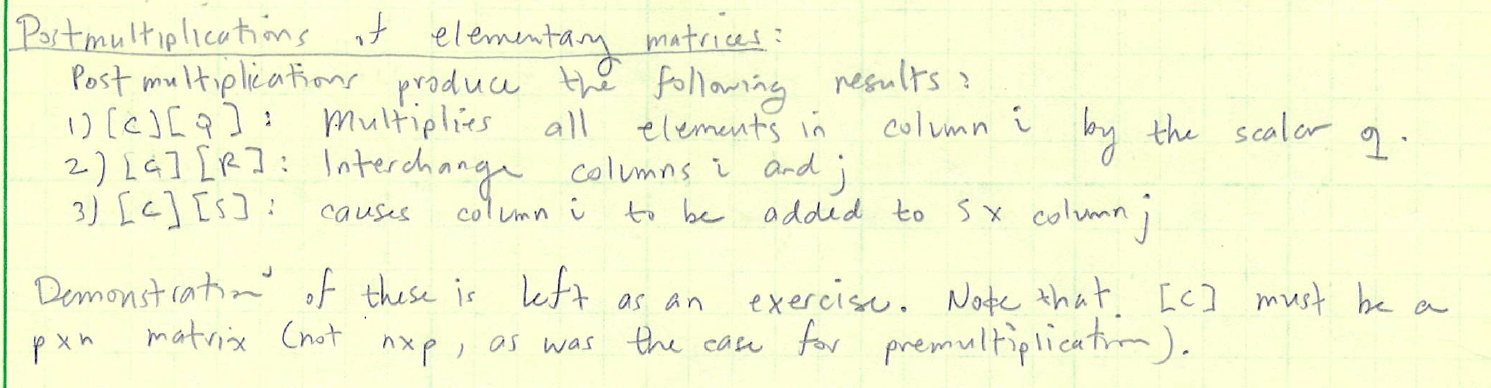 Postmultiplications of elementary matrices:
Post multiplications produce the following results:
1) [C][Q]: Multiplies all elements in column i by the scalar q.
2) [G][R]: Interchange columns i and j
3) [C][S]: causes column i to be added to s x column j
Demonstration of these is left as an exercise. Note that [C] must be a
pxn matrix (not nxp, as was the case for premultiplication).